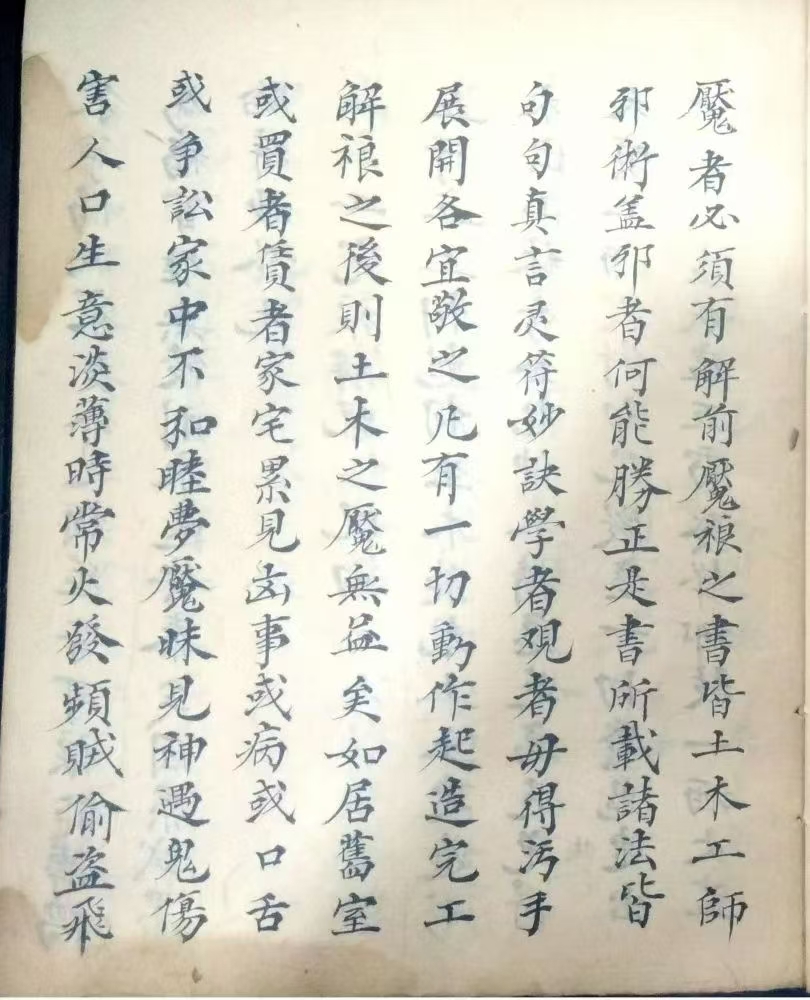 魘者必須有解前魘禳之書皆土木工師
邪術盖邪者何能勝正是書所載諸法皆
句句真言灵符妙訣學者观者毋得汚手
展開各宜敬之凢有一切動作起造完工
解禳之後則土木之魘無益矣如居舊室
或買者賃者家宅累見凶事或病或口舌
或爭訟家中不和睦夢魘昧見神遇鬼傷
害人口生意淡薄時常火發頻賊偷盗飛